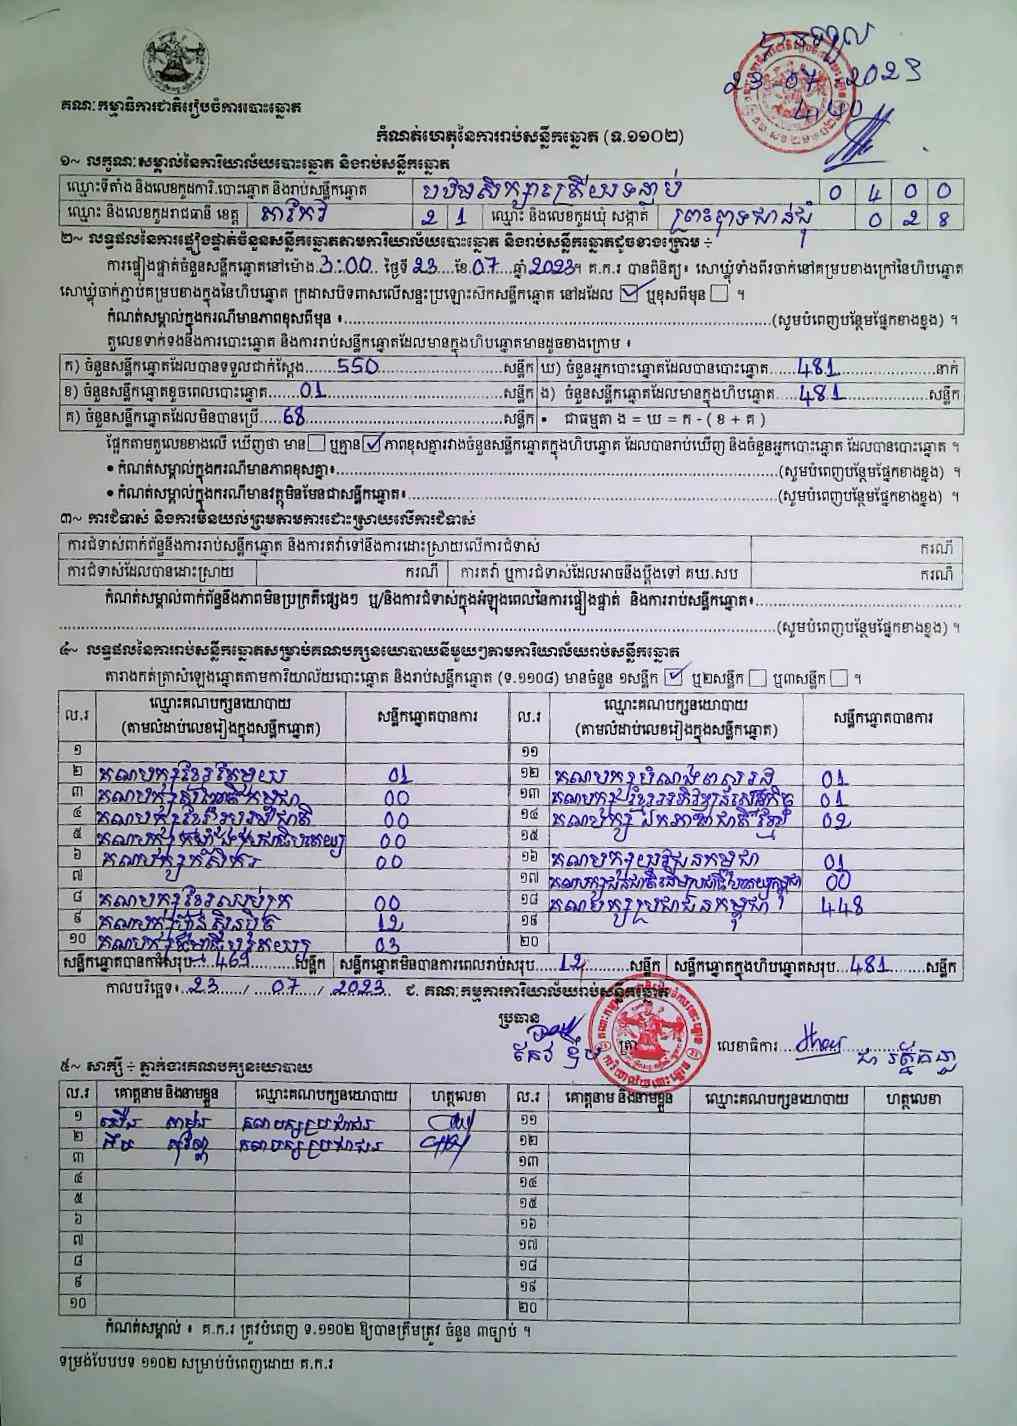 បានទទួល
23-07-2023
4:40
គណៈកម្មាធិការជាតិរៀបចំការបោះឆ្នោត
កំណត់ហេតុនៃការរាប់សន្លឹកឆ្នោត (ទ.១១០២)
១~ លក្ខណៈសម្គាល់នៃការិយាល័យបោះឆ្នោត និងរាប់សន្លឹកឆ្នោត
ឈ្មោះទីតាំង និងលេខកូដការិ.បោះឆ្នោត និងរាប់សន្លឹកឆ្នោត 0 4 0 0
ឈ្មោះ និងលេខកូដរាជធានី ខេត្ត តាកែវ 2 1 ឈ្មោះ និងលេខកូដឃុំ សង្កាត់ ព្រះបាទជាន់ជុំ 0 2 8
២~ លទ្ធផលនៃការផ្ទៀងផ្ទាត់ចំនួនសន្លឹកឆ្នោតតាមការិយាល័យបោះឆ្នោត និងរាប់សន្លឹកឆ្នោតដូចខាងក្រោម ÷
ការផ្ទៀងផ្ទាត់ចំនួនសន្លឹកឆ្នោតនៅម៉ោង 3:00 ថ្ងៃទី 23 ខែ 07 ឆ្នាំ 2023។ គ.ក.រ បានពិនិត្យ៖ សោឃ្លុំទាំងពីរចាក់នៅគម្របខាងក្រៅនៃហិបឆ្នោត
សោឃ្លុំចាក់ភ្ជាប់គម្របខាងក្នុងនៃហិបឆ្នោត ក្រដាសបិទពាសលើសន្ទះប្រឡោះស៊កសន្លឹកឆ្នោត នៅដដែល ☑ ឬខុសពីមុន ☐ ។
កំណត់សម្គាល់ក្នុងករណីមានភាពខុសពីមុន ៖ (សូមបំពេញបន្ថែមផ្នែកខាងខ្នង) ។
តួលេខទាក់ទងនឹងការបោះឆ្នោត និងការរាប់សន្លឹកឆ្នោតដែលមានក្នុងហិបឆ្នោតមានដូចខាងក្រោម ៖
ក) ចំនួនសន្លឹកឆ្នោតដែលបានទទួលជាក់ស្តែង 550 សន្លឹក ឃ) ចំនួនអ្នកបោះឆ្នោតដែលបានបោះឆ្នោត 481 នាក់
ខ) ចំនួនសន្លឹកឆ្នោតខូចពេលបោះឆ្នោត 01 សន្លឹក ង) ចំនួនសន្លឹកឆ្នោតដែលមានក្នុងហិបឆ្នោត 481 សន្លឹក
គ) ចំនួនសន្លឹកឆ្នោតដែលមិនបានប្រើ 68 សន្លឹក • ជាធម្មតា ង = ឃ = ក - ( ខ + គ )
ផ្អែកតាមតួលេខខាងលើ ឃើញថា មាន ☐ ឬគ្មាន ☑ ភាពខុសគ្នារវាងចំនួនសន្លឹកឆ្នោតក្នុងហិបឆ្នោត ដែលបានរាប់ឃើញ និងចំនួនអ្នកបោះឆ្នោត ដែលបានបោះឆ្នោត ។
• កំណត់សម្គាល់ក្នុងករណីមានភាពខុសគ្នា៖ (សូមបំពេញបន្ថែមផ្នែកខាងខ្នង) ។
• កំណត់សម្គាល់ក្នុងករណីមានវត្ថុមិនមែនជាសន្លឹកឆ្នោត៖ (សូមបំពេញបន្ថែមផ្នែកខាងខ្នង) ។
៣~ ការជំទាស់ និងការមិនយល់ព្រមតាមការដោះស្រាយលើការជំទាស់
ការជំទាស់ពាក់ព័ន្ធនឹងការរាប់សន្លឹកឆ្នោត និងការតវ៉ាទៅនឹងការដោះស្រាយលើការជំទាស់ ករណី
ការជំទាស់ដែលបានដោះស្រាយ ករណី ការតវ៉ា ឬការជំទាស់ដែលអាចនឹងប្តឹងទៅ គឃ.សប ករណី
កំណត់សម្គាល់ពាក់ព័ន្ធនឹងភាពមិនប្រក្រតីផ្សេងៗ ឬ/និងការជំទាស់ក្នុងអំឡុងពេលនៃការផ្ទៀងផ្ទាត់ និងការរាប់សន្លឹកឆ្នោត៖
(សូមបំពេញបន្ថែមផ្នែកខាងខ្នង) ។
៤~ លទ្ធផលនៃការរាប់សន្លឹកឆ្នោតសម្រាប់គណបក្សនយោបាយនីមួយៗតាមការិយាល័យរាប់សន្លឹកឆ្នោត
តារាងកត់ត្រាសំឡេងឆ្នោតតាមការិយាល័យបោះឆ្នោត និងរាប់សន្លឹកឆ្នោត (ទ.១១០៨) មានចំនួន ១សន្លឹក ☑ ឬ២សន្លឹក ☐ ឬ៣សន្លឹក ☐ ។
ល.រ ឈ្មោះគណបក្សនយោបាយ (តាមលំដាប់លេខរៀងក្នុងសន្លឹកឆ្នោត) សន្លឹកឆ្នោតបានការ ល.រ ឈ្មោះគណបក្សនយោបាយ (តាមលំដាប់លេខរៀងក្នុងសន្លឹកឆ្នោត) សន្លឹកឆ្នោតបានការ
១ ១១
២ គណបក្សខ្មែរតែមួយ 01 ១២ 01
៣ 00 ១៣ 01
៤ 00 ១៤ គណបក្សឯកភាពជាតិខ្មែរ 02
៥ 00 ១៥
៦ គណបក្សកសិករ 00 ១៦ គណបក្សយុវជនកម្ពុជា 01
៧ ១៧ 00
៨ 00 ១៨ គណបក្សប្រជាជនកម្ពុជា 448
៩ គណបក្សហ៊្វុនស៊ិនប៉ិច 12 ១៩
១០ គណបក្សធម្មាធិបតេយ្យ 03 ២០
សន្លឹកឆ្នោតបានការសរុប 469 សន្លឹក សន្លឹកឆ្នោតមិនបានការពេលរាប់សរុប 12 សន្លឹក សន្លឹកឆ្នោតក្នុងហិបឆ្នោតសរុប 481 សន្លឹក
កាលបរិច្ឆេទ៖ 23 / 07 / 2023 ជ. គណៈកម្មការការិយាល័យរាប់សន្លឹកឆ្នោត
ប្រធាន
ត្រា លេខាធិការ
៥~ សាក្សី ÷ ភ្នាក់ងារគណបក្សនយោបាយ
ល.រ គោត្តនាម និងនាមខ្លួន ឈ្មោះគណបក្សនយោបាយ ហត្ថលេខា ល.រ គោត្តនាម និងនាមខ្លួន ឈ្មោះគណបក្សនយោបាយ ហត្ថលេខា
១ គណបក្សប្រជាជន ១១
២ គណបក្សប្រជាជន ១២
៣ ១៣
៤ ១៤
៥ ១៥
៦ ១៦
៧ ១៧
៨ ១៨
៩ ១៩
១០ ២០
កំណត់សម្គាល់ ៖ គ.ក.រ ត្រូវបំពេញ ទ.១១០២ ឱ្យបានត្រឹមត្រូវ ចំនួន ៣ច្បាប់ ។
ទម្រង់បែបបទ ១១០២ សម្រាប់បំពេញដោយ គ.ក.រ